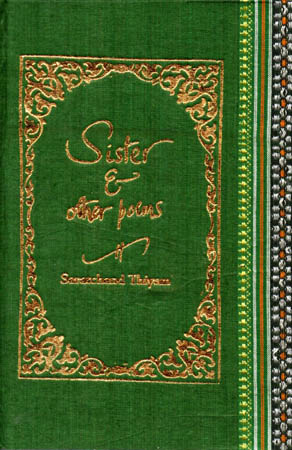 Sister
&
other poems
Saratchand Thiyam